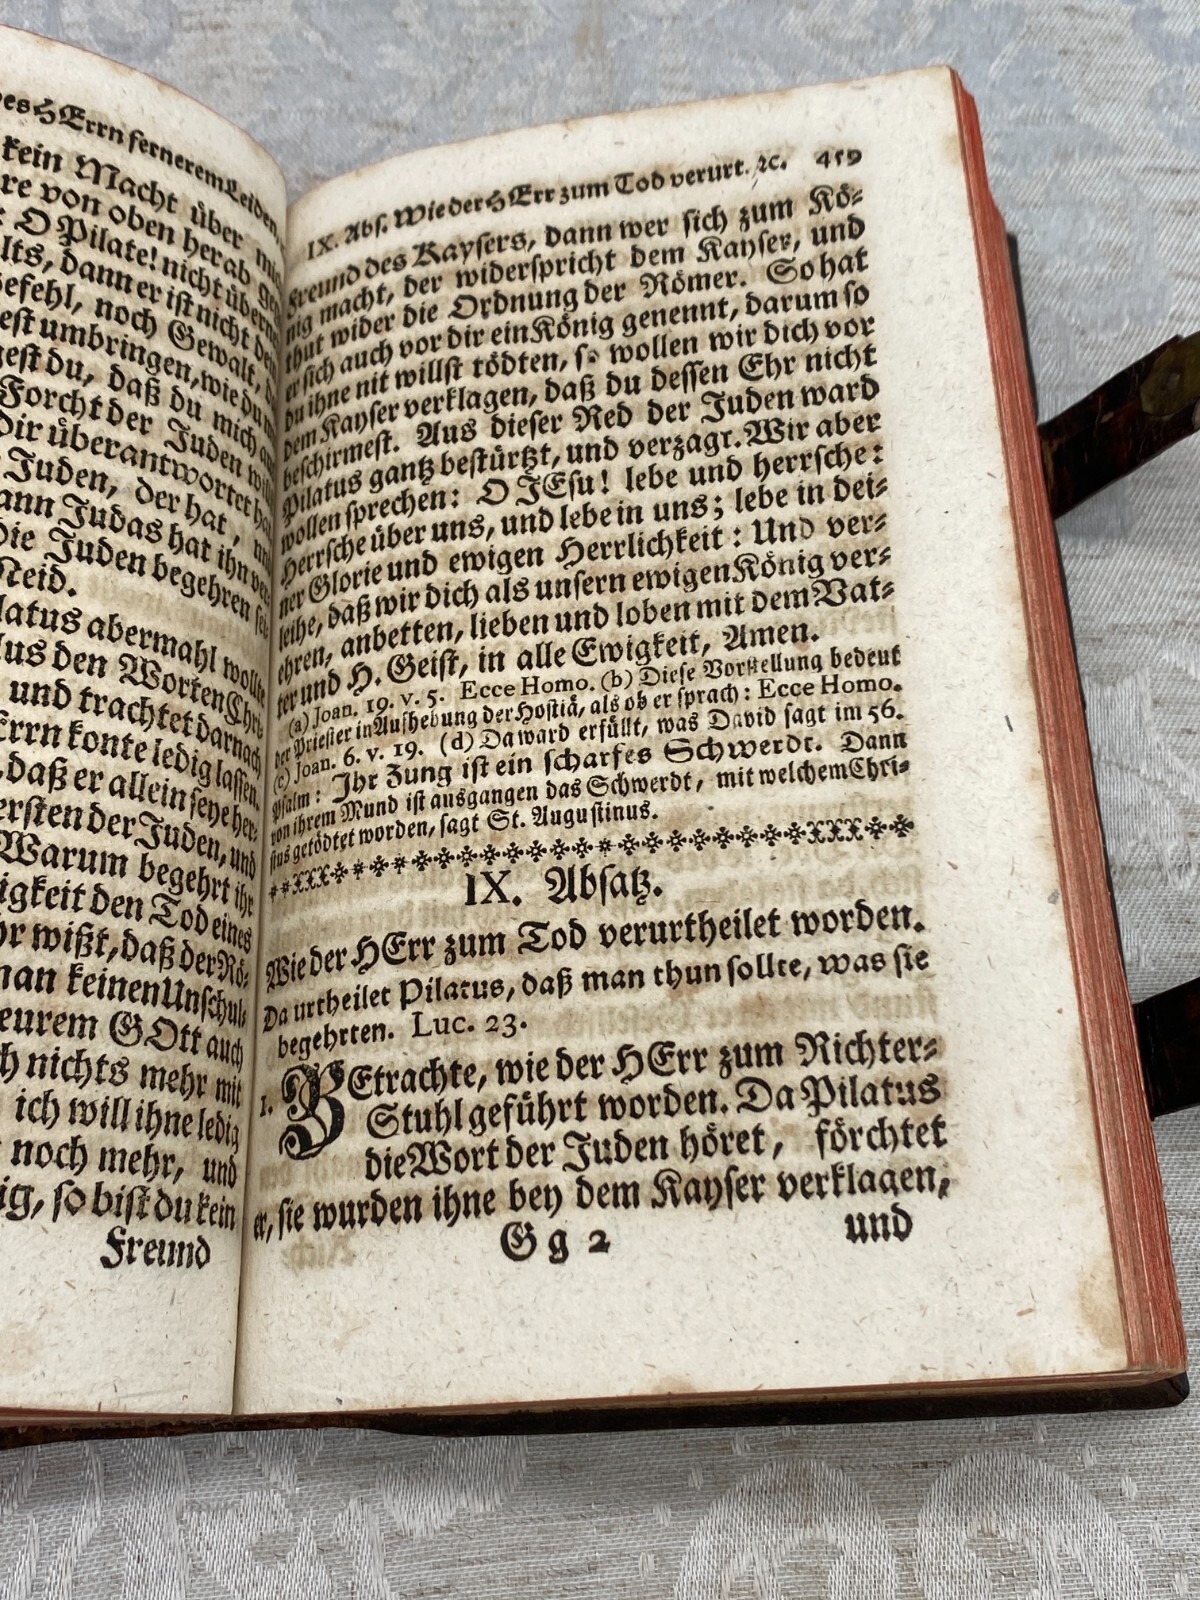 des HErrn fernerem Leiden,
kein Macht über mich
re von oben herab geg
: O Pilate! nicht überne
lts, dann er ist nicht dei
Befehl, noch Gewalt, d
est umbringen, wie du m
gest du, daß du mich au
Forcht der Juden will
Dir überantwortet hat
Juden, der hat, und
ann Judas hat ihn ver-
Die Juden begehren sei-
Neid.
latus abermahl wollte
lus den Worten Chri-
und trachtet darnach
Errn konte ledig lassen.
daß er allein seye her-
ersten der Juden, und
Warum begehrt ihr
igkeit den Tod eines
hr wißt, daß der Rö-
man keinen Unschul-
eurem GOtt auch
h nichts mehr mit
ich will ihne ledig
noch mehr, und
ig, so bist du kein
Freund
IX. Abs. Wie der HErr zum Tod verurt. ꝛc. 459
Freund des Kaysers, dann wer sich zum Kö-
nig macht, der widerspricht dem Kayser, und
thut wider die Ordnung der Römer. So hat
er sich auch vor dir ein König genennt, darum so
du ihne nit willst tödten, so wollen wir dich vor
dem Kayser verklagen, daß du dessen Ehr nicht
beschirmest. Aus dieser Red der Juden ward
Pilatus gantz bestürtzt, und verzagt. Wir aber
wollen sprechen: O JEsu! lebe und herrsche:
Herrsche über uns, und lebe in uns; lebe in dei-
ner Glorie und ewigen Herrlichkeit: Und ver-
leihe, daß wir dich als unsern ewigen König ver-
ehren, anbetten, lieben und loben mit dem Vat-
ter und H. Geist, in alle Ewigkeit, Amen.
(a) Joan. 19. v. 5. Ecce Homo. (b) Diese Vorstellung bedeut
der Priester in Aufhebung der Hostiä, als ob er sprach: Ecce Homo.
(c) Joan. 6. v. 19. (d) Da ward erfüllt, was David sagt im 56.
Psalm: Ihr Zung ist ein scharfes Schwerdt. Dann
von ihrem Mund ist ausgangen das Schwerdt, mit welchem Chri-
stus getödtet worden, sagt St. Augustinus.
IX. Absatz.
Wie der HErr zum Tod verurtheilet worden.
Da urtheilet Pilatus, daß man thun sollte, was sie
begehrten. Luc. 23.
1. BEtrachte, wie der HErr zum Richter-
Stuhl geführt worden. Da Pilatus
die Wort der Juden höret, förchtet
er, sie wurden ihne bey dem Kayser verklagen,
Gg 2 und